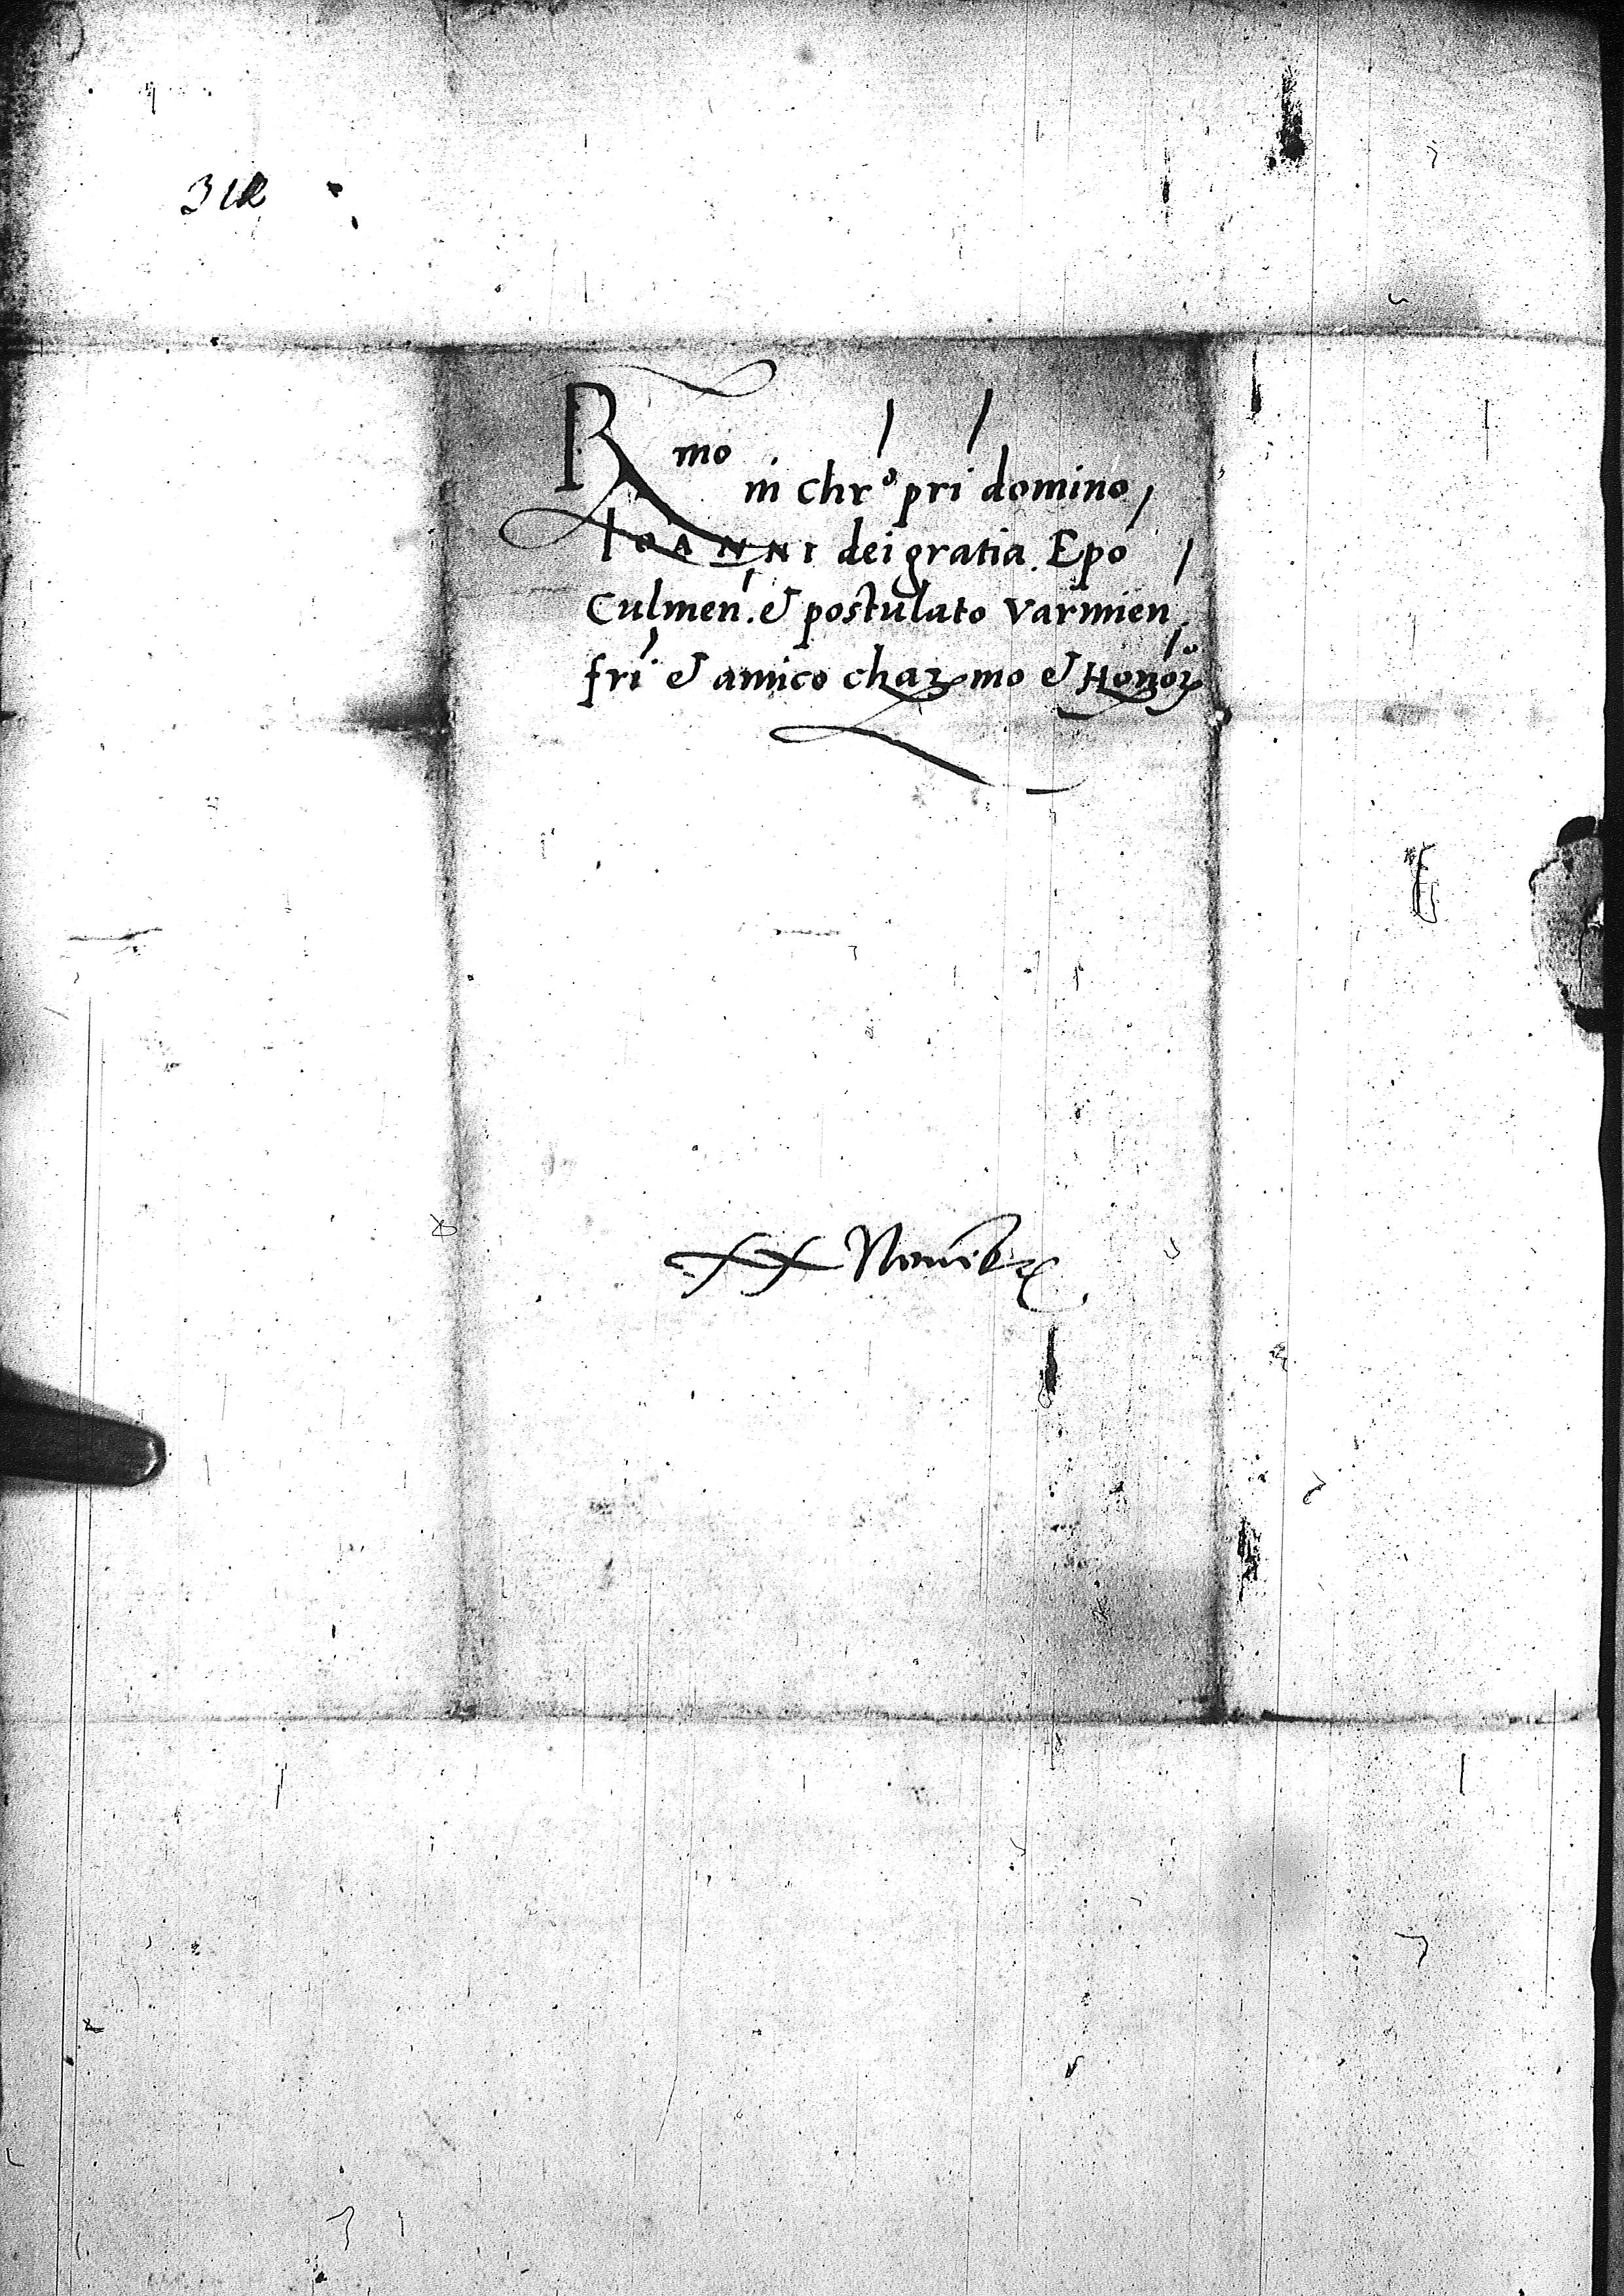 Rmo in Chro pri domino,
IOANNI dei gratia Epo
Culmen. & postulato Varmien
fri & amico charmo & Honor
xx Novēbr